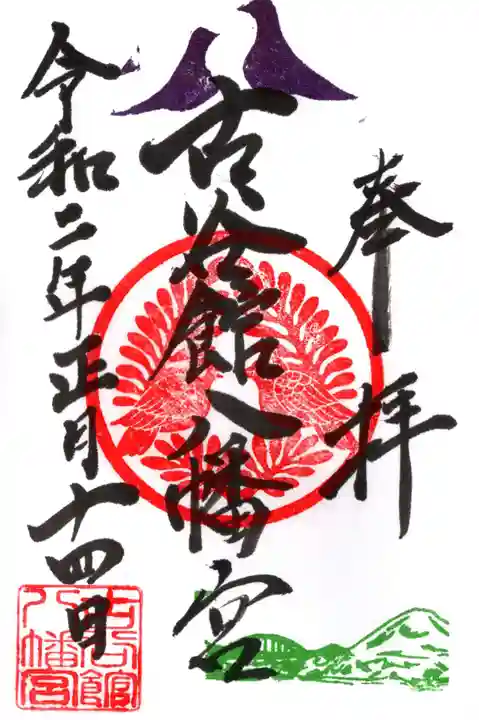 奉拝
古谷館八幡宮
令和二年正月十四日
古谷館
八幡宮